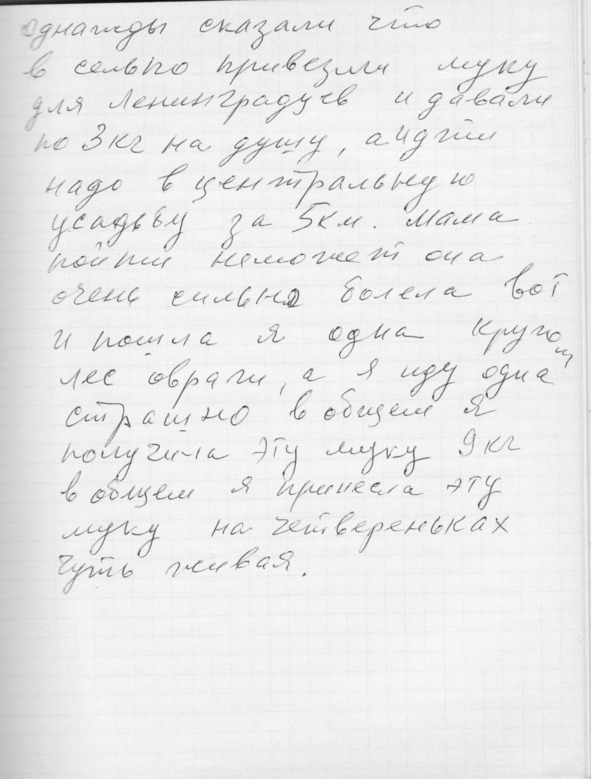 однажды сказали что
в сельпо привезли муку
для Ленинградцев и давали
по 3кг на душу, а идти
надо в центральную
усадьбу за 5км. мама
пойти неможет она
очень сильно болела вот
и пошла я одна кругом
лес овраги, а я иду одна
страшно в общем я
получила эту муку 9кг
в общем я принесла эту
муку на четвереньках
чуть живая.